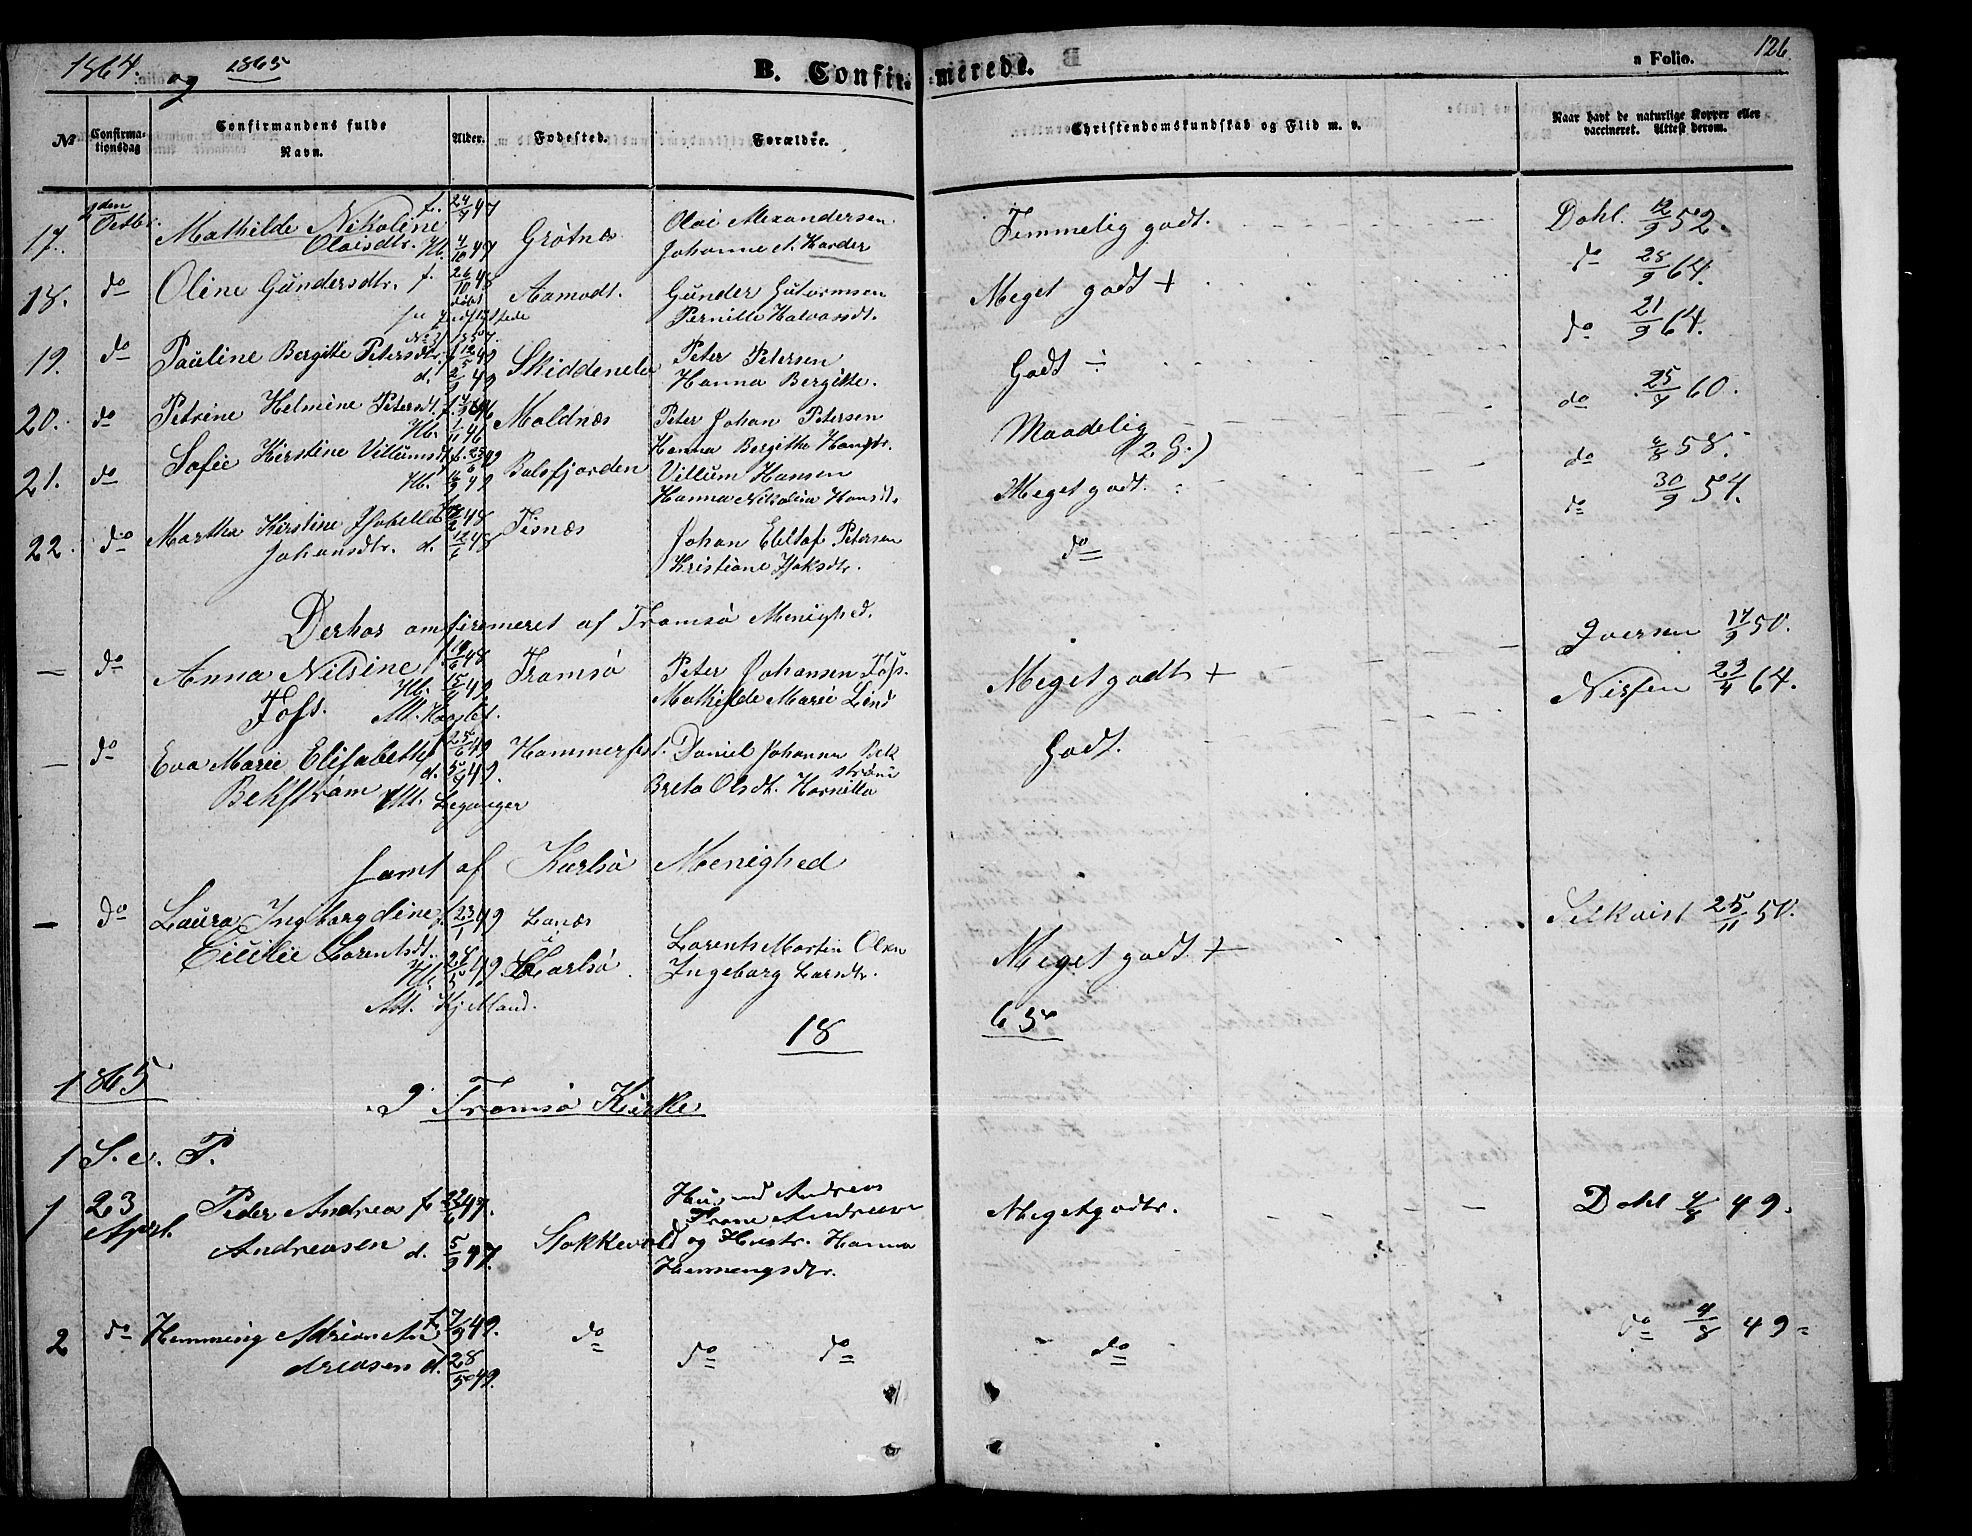 1864. og 1865
B. Confirmerede.
a Folio. 126
No Confirmationsdag Confirmandens fulde Navn. Alder. Fødested. Forældre. Christendomskundskab og Flid m. v. Naar havt de naturlige Kopper eller vaccineret. Attest derom.
17. 2den Octbr. Mathilde Nikoline f. 24/7 47 Grøtnæs Olai Alexandersen Temmelig godt. Dahl. 12/9 52.
Olaisdtr. Hb. 4/10 47 Johanna A. Karder
18. do Oline Gundersdtr. f. 26/10 48 Aamodt. Gunder Gutormsen Meget godt + do 28/9 64.
døbt Pernille Halvorsdt.
19. do Pauline Bergitte Petersdtr. 12/2 49 Skiddenelv Peter Petersen Godt ÷ do 21/9 64.
d. 2/9 49 Hanna Bergitte.
20. do Petrine Helmine Petersdt. f. 4/9 46 Maldnæs Peter Johan Petersen Maadelig do 25/7 60.
Hb. 1/11 46 Hanna Bergitha Hansdtr. (2 G.)
21. do Sofie Kirstine Villumsdt. f. 23/6 49 Balsfjorden Villum Hansen Meget godt. do 4/8 58.
Hb. 4/9 49 Hanna Nikolina Hansdt.
22. do Martha Kirstine Isabella 48 Tisnæs Johan Eliltaf Petersen do do 30/9 54.
Johansdtr. d. 12/6 48 Kristiane Isaksdtr.
Derhos confirmeret af Tromsø Menighed.
— do Anna Nilsine f. 19/6 48 Tromsø Peter Johansen Foss. Meget godt + Iversen 17/9 50.
Foss. Hb. 15/4 49 Mathilde Marie Lind
Att.
— do Eva Marie Elisabeth f. 25/6 49 Hammerfest. Daniel Johannes Bek Godt. Nissen 23/4 64.
Bekstrøm d. 5/9 49. strøm
Att. Leganger Breta Olsdt. Hornilla
samt af Karlsø Menighed
— do Laura Ingeborg dine f. 23/1 49 Lanæs Lorents Martin Olsen Meget godt + Selkvist 25/11 50.
Cicilie Lorentsdt. i
Hb. 27/5 49 Karlsø. Ingeborg Larsdtr.
Att. Kjelland.
18 63
1865
I Tromsø Kirke
1 S. e. P.
1 23 April. Peder Andreas f. 22/6 47. Stokkevold Husmd Andreas Meget godt. Dahl 4/8 49.
Andreasen d. 5/9 47. Frans Andreasen
og Hustr. Hanna
Hemmingsdtr.
2 do Hemming Adrian An f. 7/9 49. do do do do do 4/8 49
dreasen d. 28/5 49.